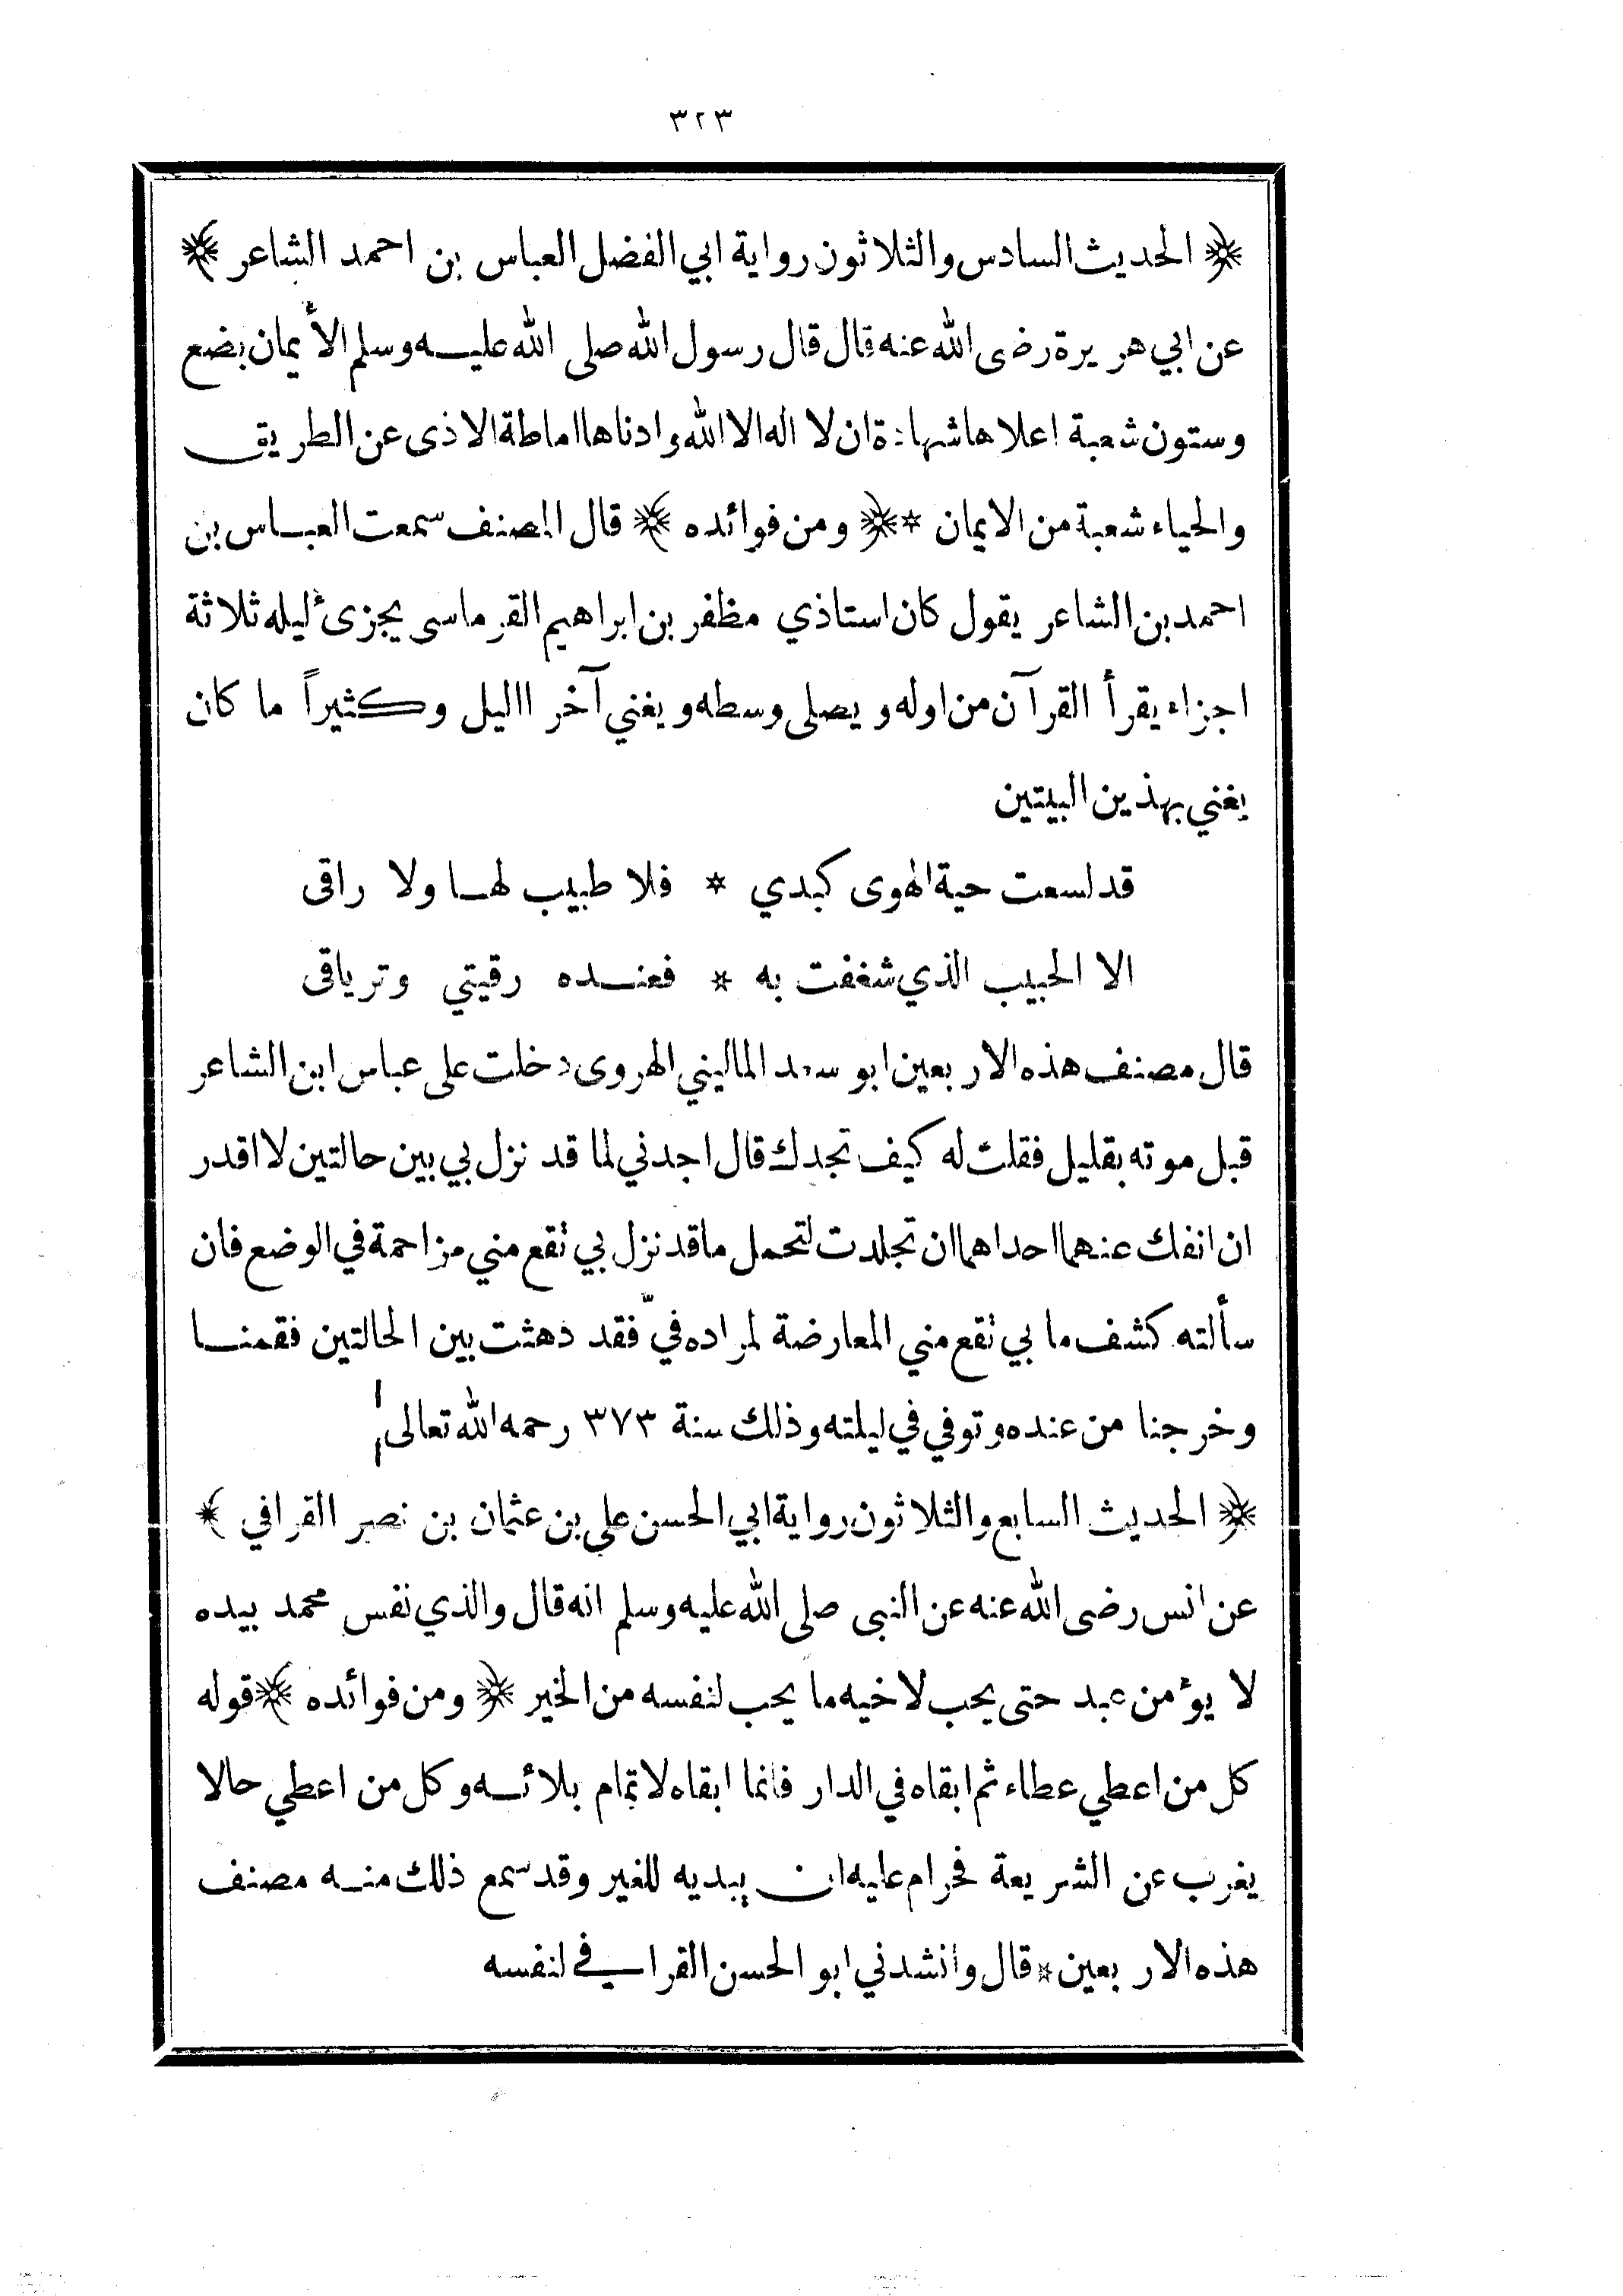 ٣٢٣
﴿ الحديث السادس والثلاثون رواية ابي الفضل العباس بن احمد الشاعر ﴾
عن ابي هريرة رضى الله عنه قال قال رسول الله صلى الله عليه وسلم الأيمان بضع
وستون شعبة اعلاها شهادة ان لا اله الا الله وادناها اماطة الاذى عن الطريق
والحياء شعبة من الايمان * ﴿ ومن فوائده ﴾ قال المصنف سمعت العباس بن
احمد بن الشاعر يقول كان استاذي مظفر بن ابراهيم القرماسى يجزئ ليله ثلاثة
اجزاء يقرأ القرآن من اوله ويصلى وسطه ويغني آخر الليل وكثيراً ما كان
يغني بهذين البيتين
قد لسعت حية الهوى كبدي * فلا طبيب لها ولا راقى
الا الحبيب الذي شغفت به * فعنده رقيتي وترياقى
قال مصنف هذه الاربعين ابو سعد الماليني الهروى دخلت على عباس ابن الشاعر
قبل موته بقليل فقلت له كيف تجدك قال اجدني لما قد نزل بي بين حالتين لا اقدر
ان انفك عنهما احداهما ان تجلدت لتحمل ما قد نزل بي تقع مني مزاحمة في الوضع فان
سألته كشف ما بي تقع مني المعارضة لمراده فيّ فقد دهثت بين الحالتين فقمنا
وخرجنا من عنده وتوفي في ليلته وذلك سنة ٣٧٣ رحمه الله تعالى
﴿ الحديث السابع والثلاثون رواية ابي الحسن علي بن عثمان بن نصر القرافي ﴾
عن انس رضى الله عنه عن النبى صلى الله عليه وسلم انه قال والذي نفس محمد بيده
لا يؤمن عبد حتى يحب لاخيه ما يحب لنفسه من الخير ﴿ ومن فوائده ﴾ قوله
كل من اعطي عطاء ثم ابقاه في الدار فانما ابقاه لاتمام بلائه وكل من اعطي حالا
يغرب عن الشريعة فحرام عليه ان يبديه للغير وقد سمع ذلك منه مصنف
هذه الاربعين * قال وانشدني ابو الحسن القرافي لنفسه